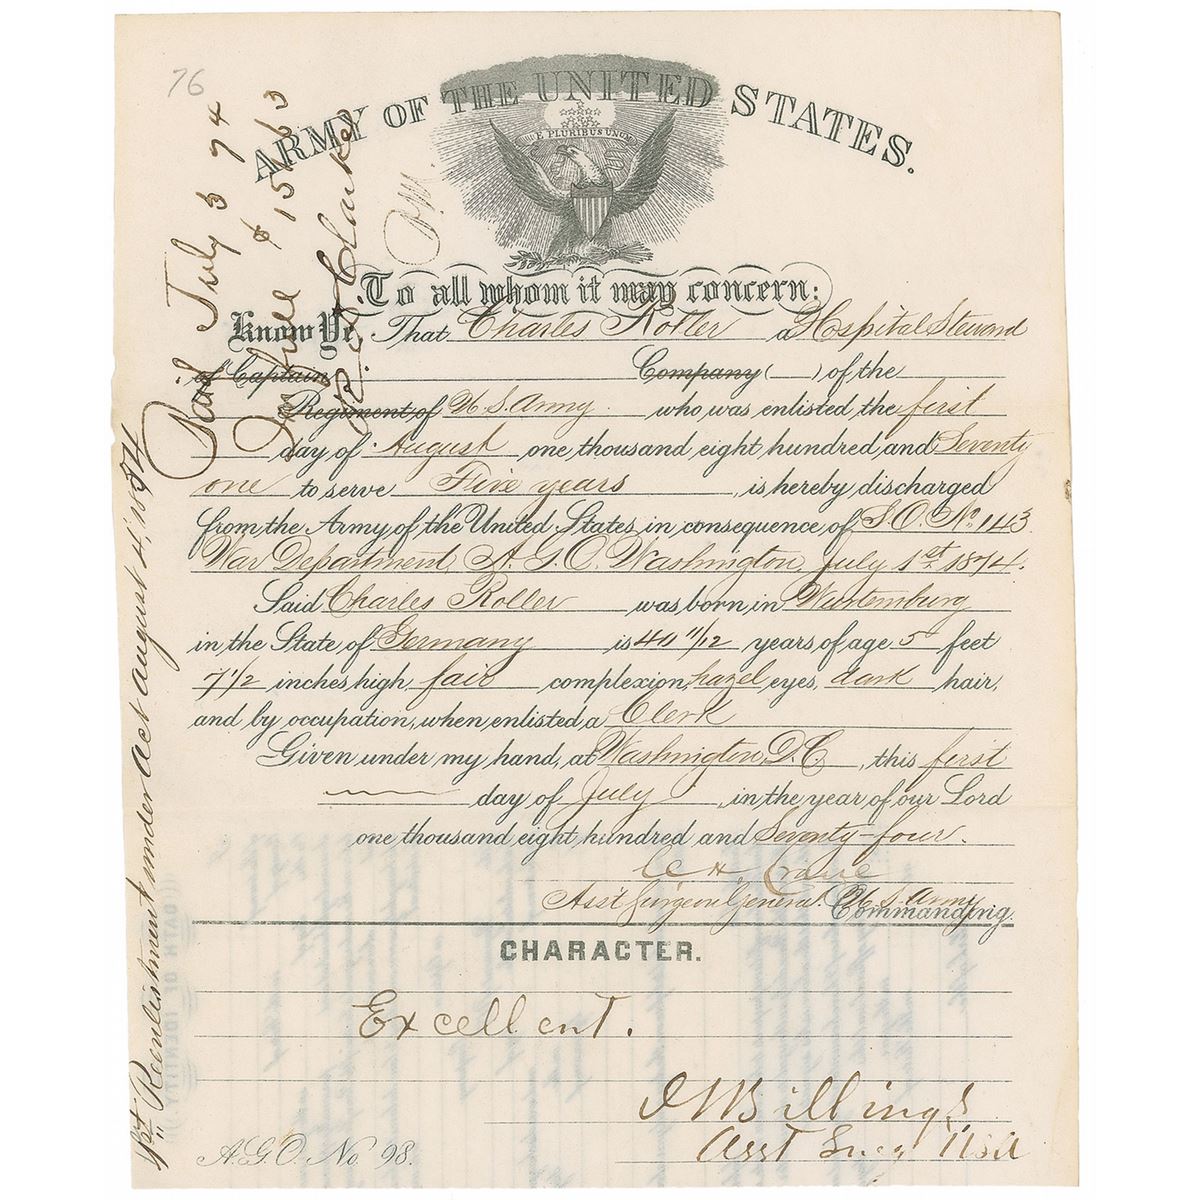 76
ARMY OF THE UNITED STATES.
E PLURIBUS UNUM
To all whom it may concern:
Know Ye, That Charles Roller a Hospital Steward
of Captain Company ( ) of the
Regiment of U.S. Army who was enlisted the first
day of August one thousand eight hundred and Seventy
one to serve Five years, is hereby discharged
from the Army of the United States, in consequence of S.O. No. 143
War Department, A.G.O. Washington, July 1st, 1874.
Said Charles Roller was born in Wurtemburg
in the State of Germany is 40 11/12 years of age 5 feet
7 1/2 inches high, fair complexion, hazel eyes, dark hair,
and by occupation, when enlisted a Clerk
Given under my hand, at Washington D.C., this first
day of July, in the year of our Lord
one thousand eight hundred and Seventy-four.
C H. Crane
Asst Surgeon General U.S. Army
Commanding.
CHARACTER.
Excellent.
J S Billings
Asst Surg USA
A.G.O. No. 98.
Paid July 3 74
in full $ 15 63
P.M.
1st Reenlistment under Act August 4, 1854
OATH OF IDENTITY.